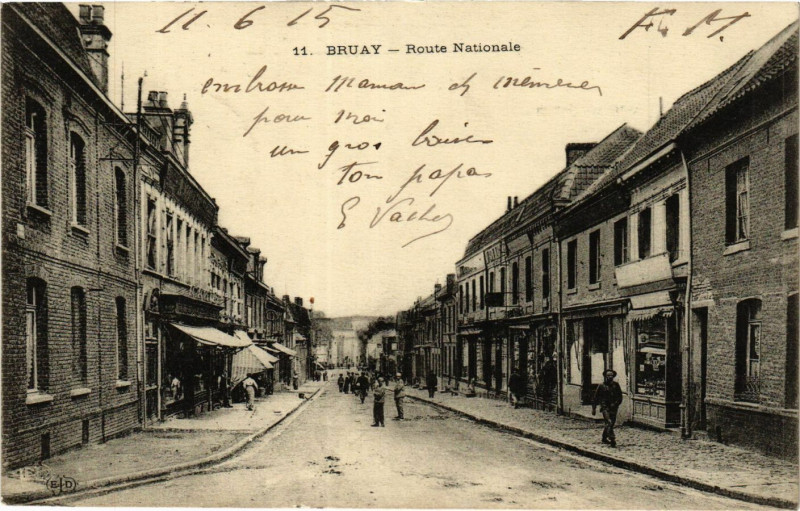 11. 6 15
F. M.
11. BRUAY – Route Nationale
embrasse Maman et mémère
pour moi
un gros baiser
ton papa
E Vacher
ELD